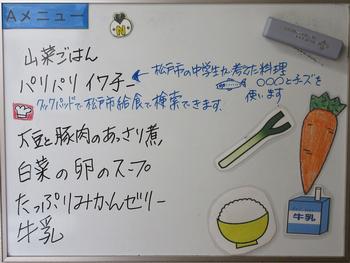 Aメニュー
N
山菜ごはん
パリパリイワチー ← 松戸市の中学生が考えた料理
〇〇〇とチーズを
使います
クックパッドで松戸市給食で検索できます。
大豆と豚肉のあっさり煮
白菜の卵のスープ
たっぷりみかんゼリー
牛乳
牛乳